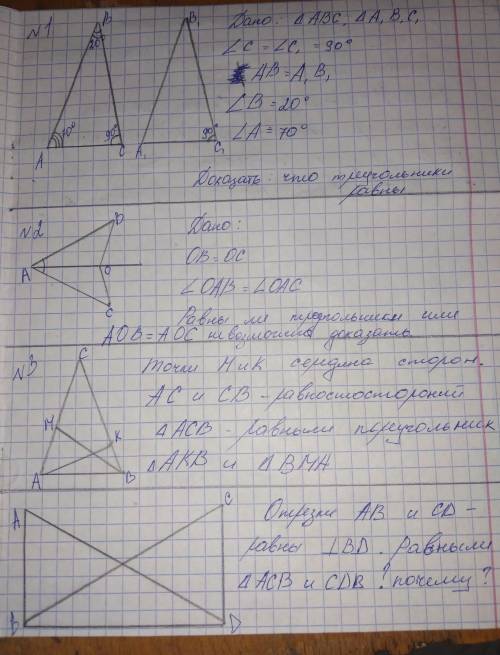 №1
B
B₁
20°
70°
90°
90°
A
C
A₁
C₁
Дано: △ABC, △A₁B₁C₁
∠C = ∠C₁ = 90°
AB = A₁B₁
∠B = 20°
∠A = 70°
Доказать: что треугольники
равны
№2
B
A
O
C
Дано:
OB = OC
∠OAB = ∠OAC
Равны ли треугольники или
AOB = AOC невозможно доказать.
№3
C
M
K
A
B
Точки M и K середина сторон.
AC и CB – равностостороний
△ACB – равными треугольник
△AKB и △BMA
A
C
B
D
Отрезки AB и CD –
равны ⊥BD. Равными
△ACB и CDB ? почему?